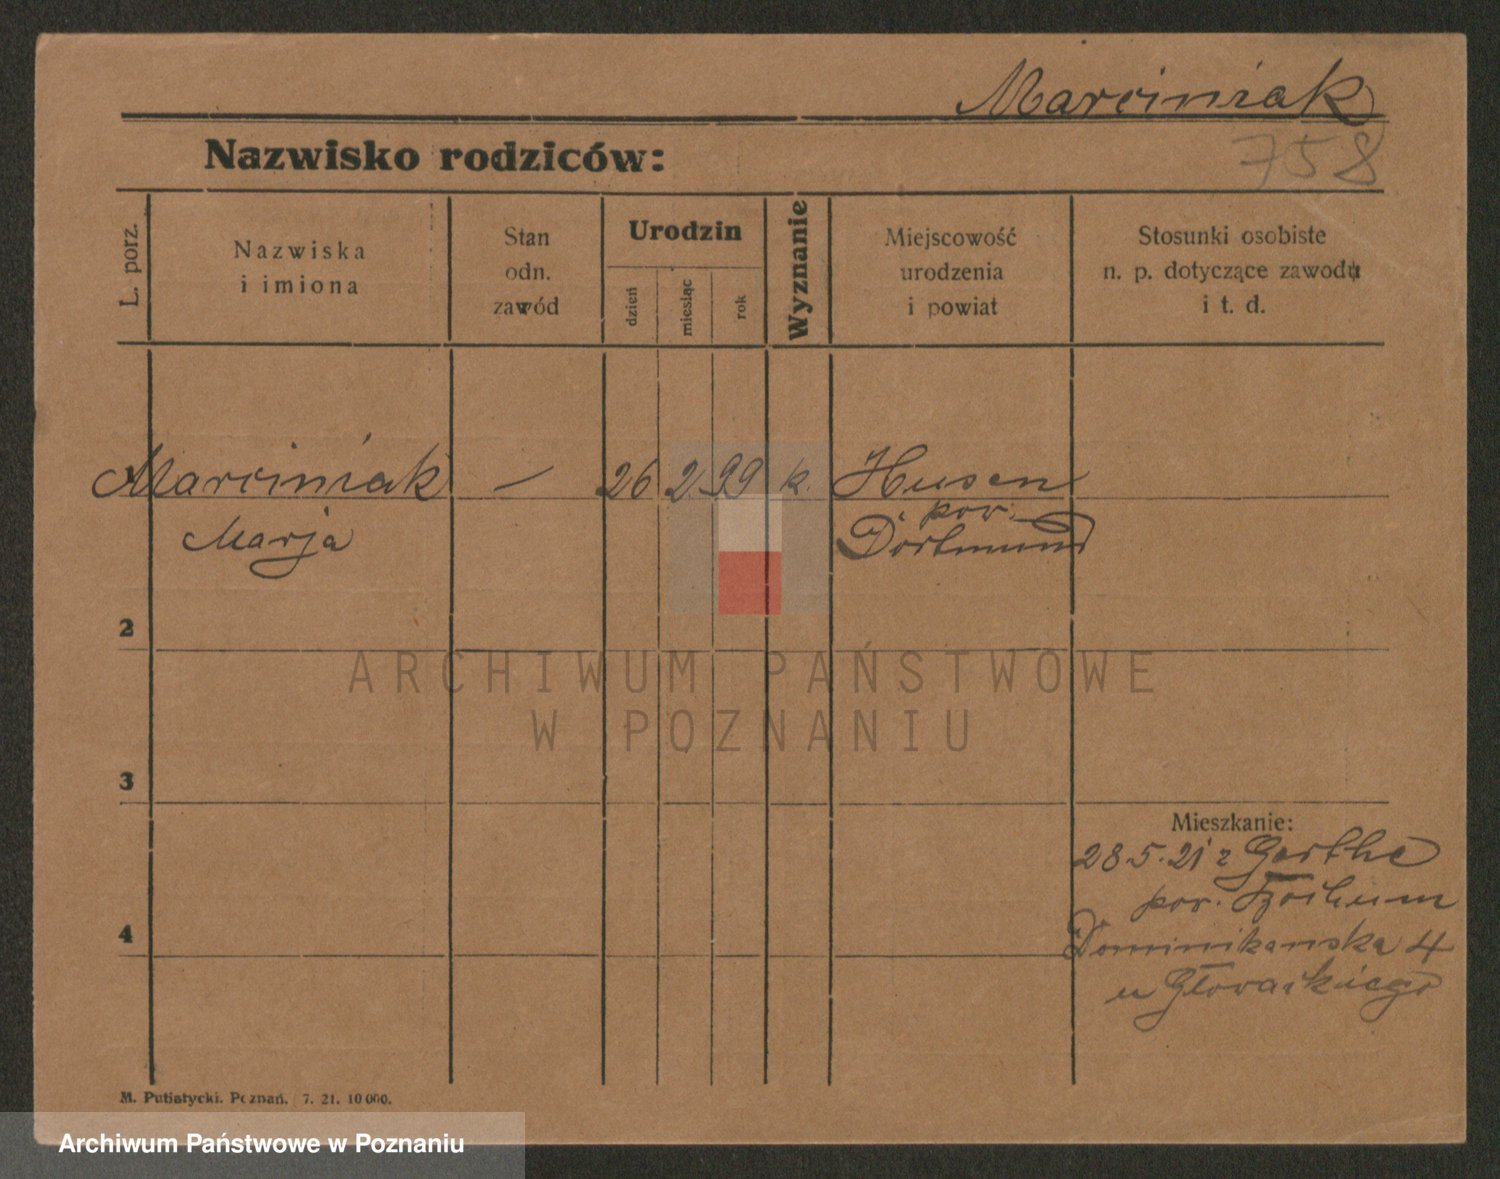 Marciniak
758
Nazwisko rodziców:
L. porz.
Nazwiska
i imiona
Stan
odn.
zawód
Urodzin
dzień
miesiąc
rok
Wyznanie
Miejscowość
urodzenia
i powiat
Stosunki osobiste
n. p. dotyczące zawodu
i t. d.
Marciniak – 26 2. 99 k. Husen
pow.
Marja Dortmund
2
ARCHIWUM PAŃSTWOWE
W POZNANIU
3
Mieszkanie:
28.5.21 z Gerthe
pow. Bochum
4
Dominikańska 4
u Głowackiego
M. Putiatycki. Poznań. 7. 21. 10 000.
Archiwum Państwowe w Poznaniu